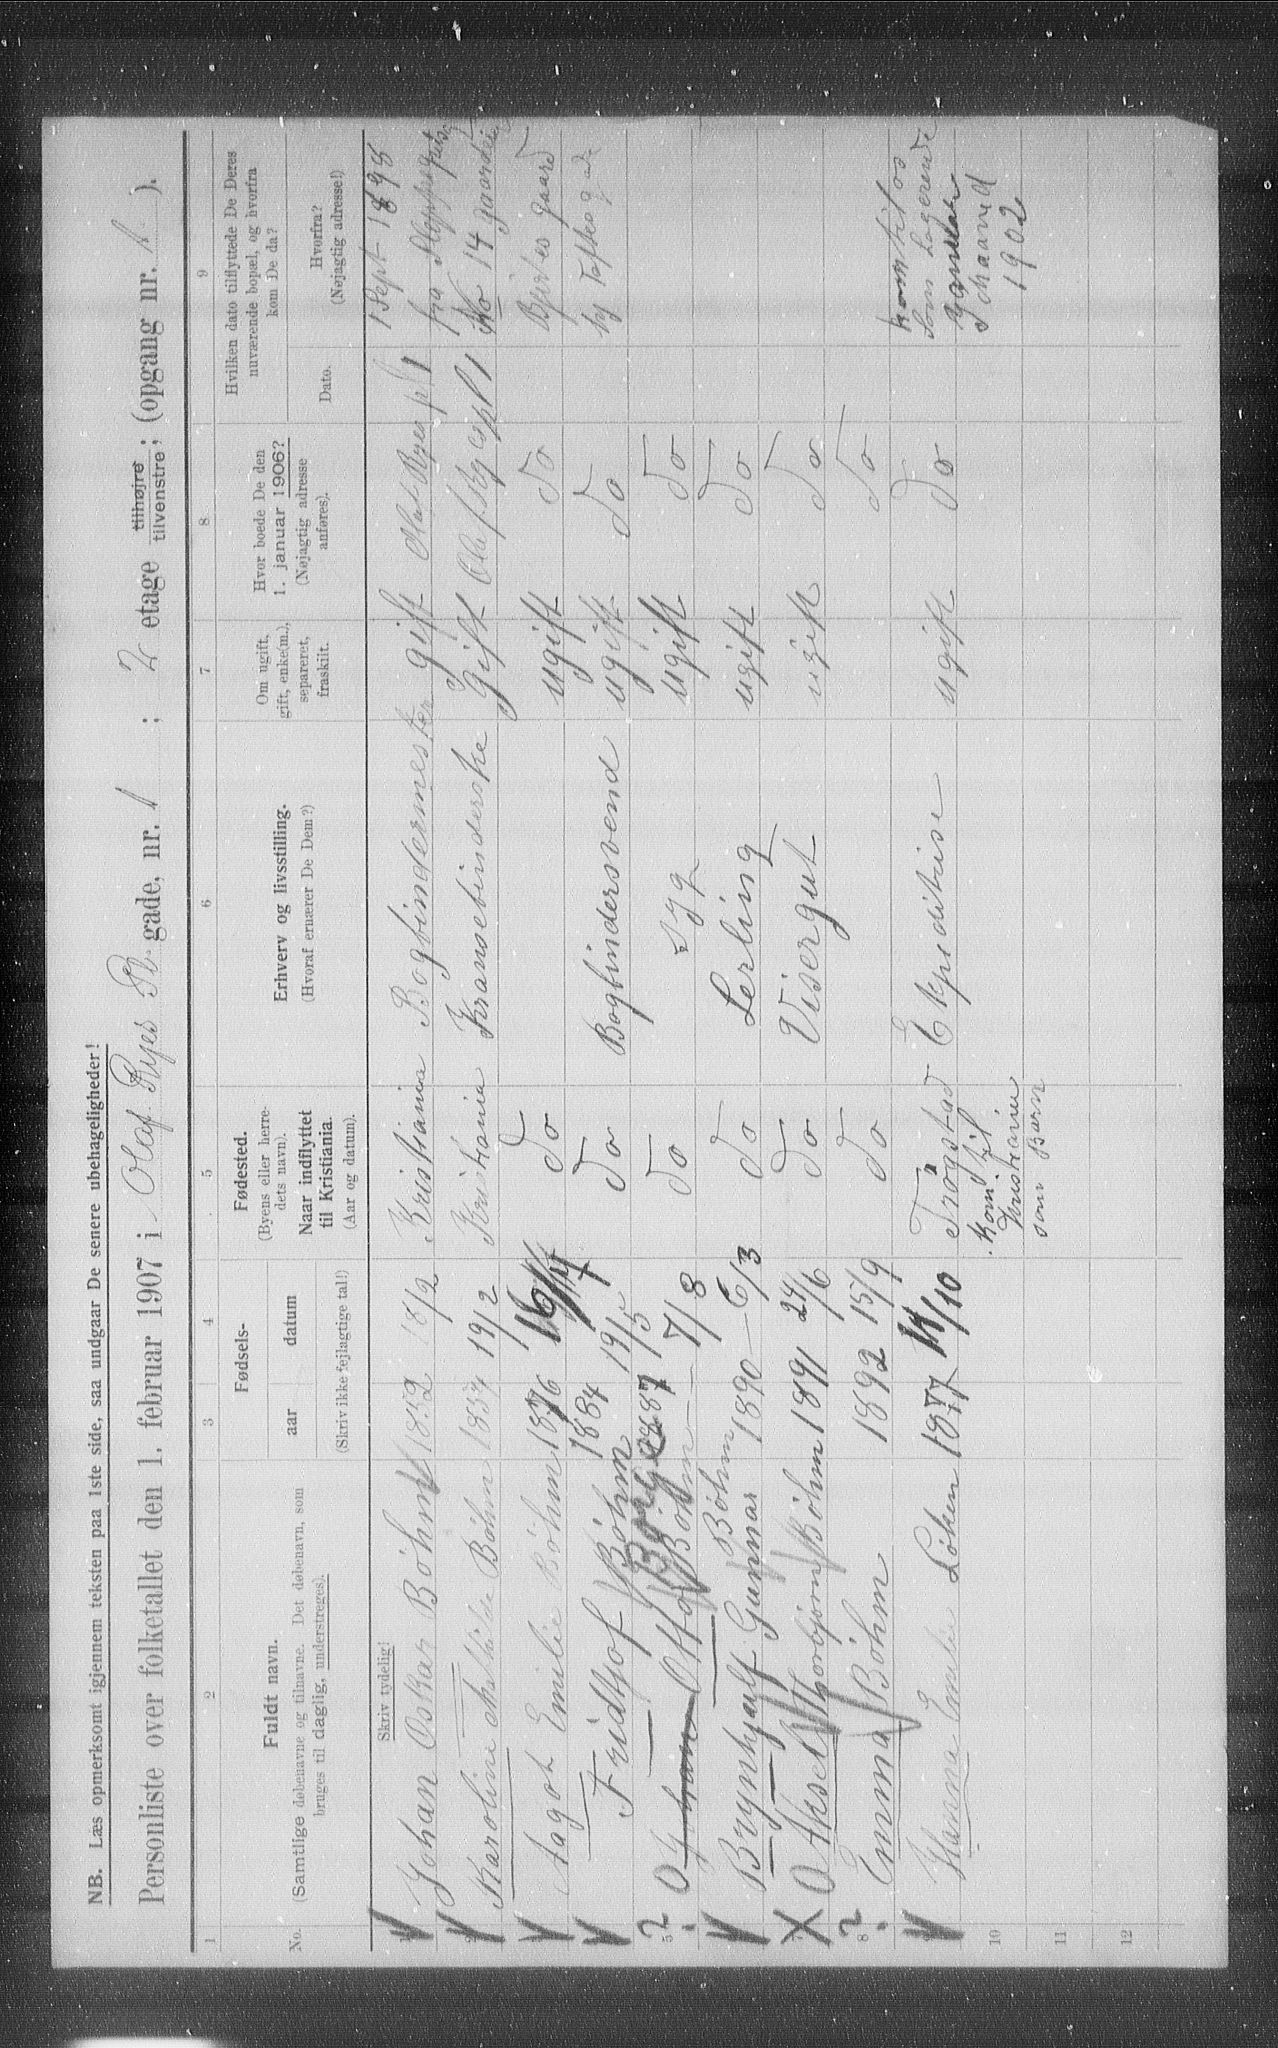 NB. Læs opmerksomt igjennem teksten paa 1ste side, saa undgaar De senere ubehageligheder!
Personliste over folketallet den 1. februar 1907 i Olaf Ryes Pl. gade, nr. 1 ; 2 etage tilhøjre tilvenstre ; (opgang nr. 1 ).
1 2 3 4 5 6 7 8 9
No.
Fuldt navn.
(Samtlige døbenavne og tilnavne. Det døbenavn, som
bruges til daglig, understreges).
Fødsels-
aar datum
(Skriv ikke fejlagtige tal!)
Fødested.
(Byens eller herre-
dets navn).
Naar indflyttet
til Kristiania.
(Aar og datum).
Erhverv og livsstilling.
(Hvoraf ernærer De Dem?)
Om ugift,
gift, enke(m.),
separeret,
fraskilt.
Hvor boede De den
1. januar 1906?
(Nøjagtig adresse
anføres).
Hvilken dato tilflyttede De Deres
nuværende bopæl, og hvorfra
kom De da?
Dato.
Hvorfra?
(Nøjagtig adresse!)
Skriv tydelig!
1 Johan Oskar Bøhm 1852 18/2 Kristiania Bogbindermester gift Olaf Ryes pl 1 1 Sept 1898
2 Karoline Mathilde Bøhm 1854 19/2 Kristiania Kransebinderske Gift Olaf Ryes pl 1 fra
No 14
3 Aagot Emilie Bøhm 1876 16/4 do ugift do gaard
4 Fridtjof Bøhm 1884 19/5 do Bogbindersvend ugift do
5 Johan Otto Børge Bøhm 1887 7/8 do Syg ugift do
6 Brynhjulf Gunnar Bøhm 1890 6/3 do Lerling ugift do
7 Aksel Thorbjørn Bøhm 1891 24/6 do Visergut ugift do
8 Emma Bøhm 1892 15/9 do do
9 Hanna Emilie Løken 1877 11/10 Trøgstad Ekspeditrise ugift do
kom til
Kristiania
som Barn
kom til os
som Logerende
1902
10
11
12